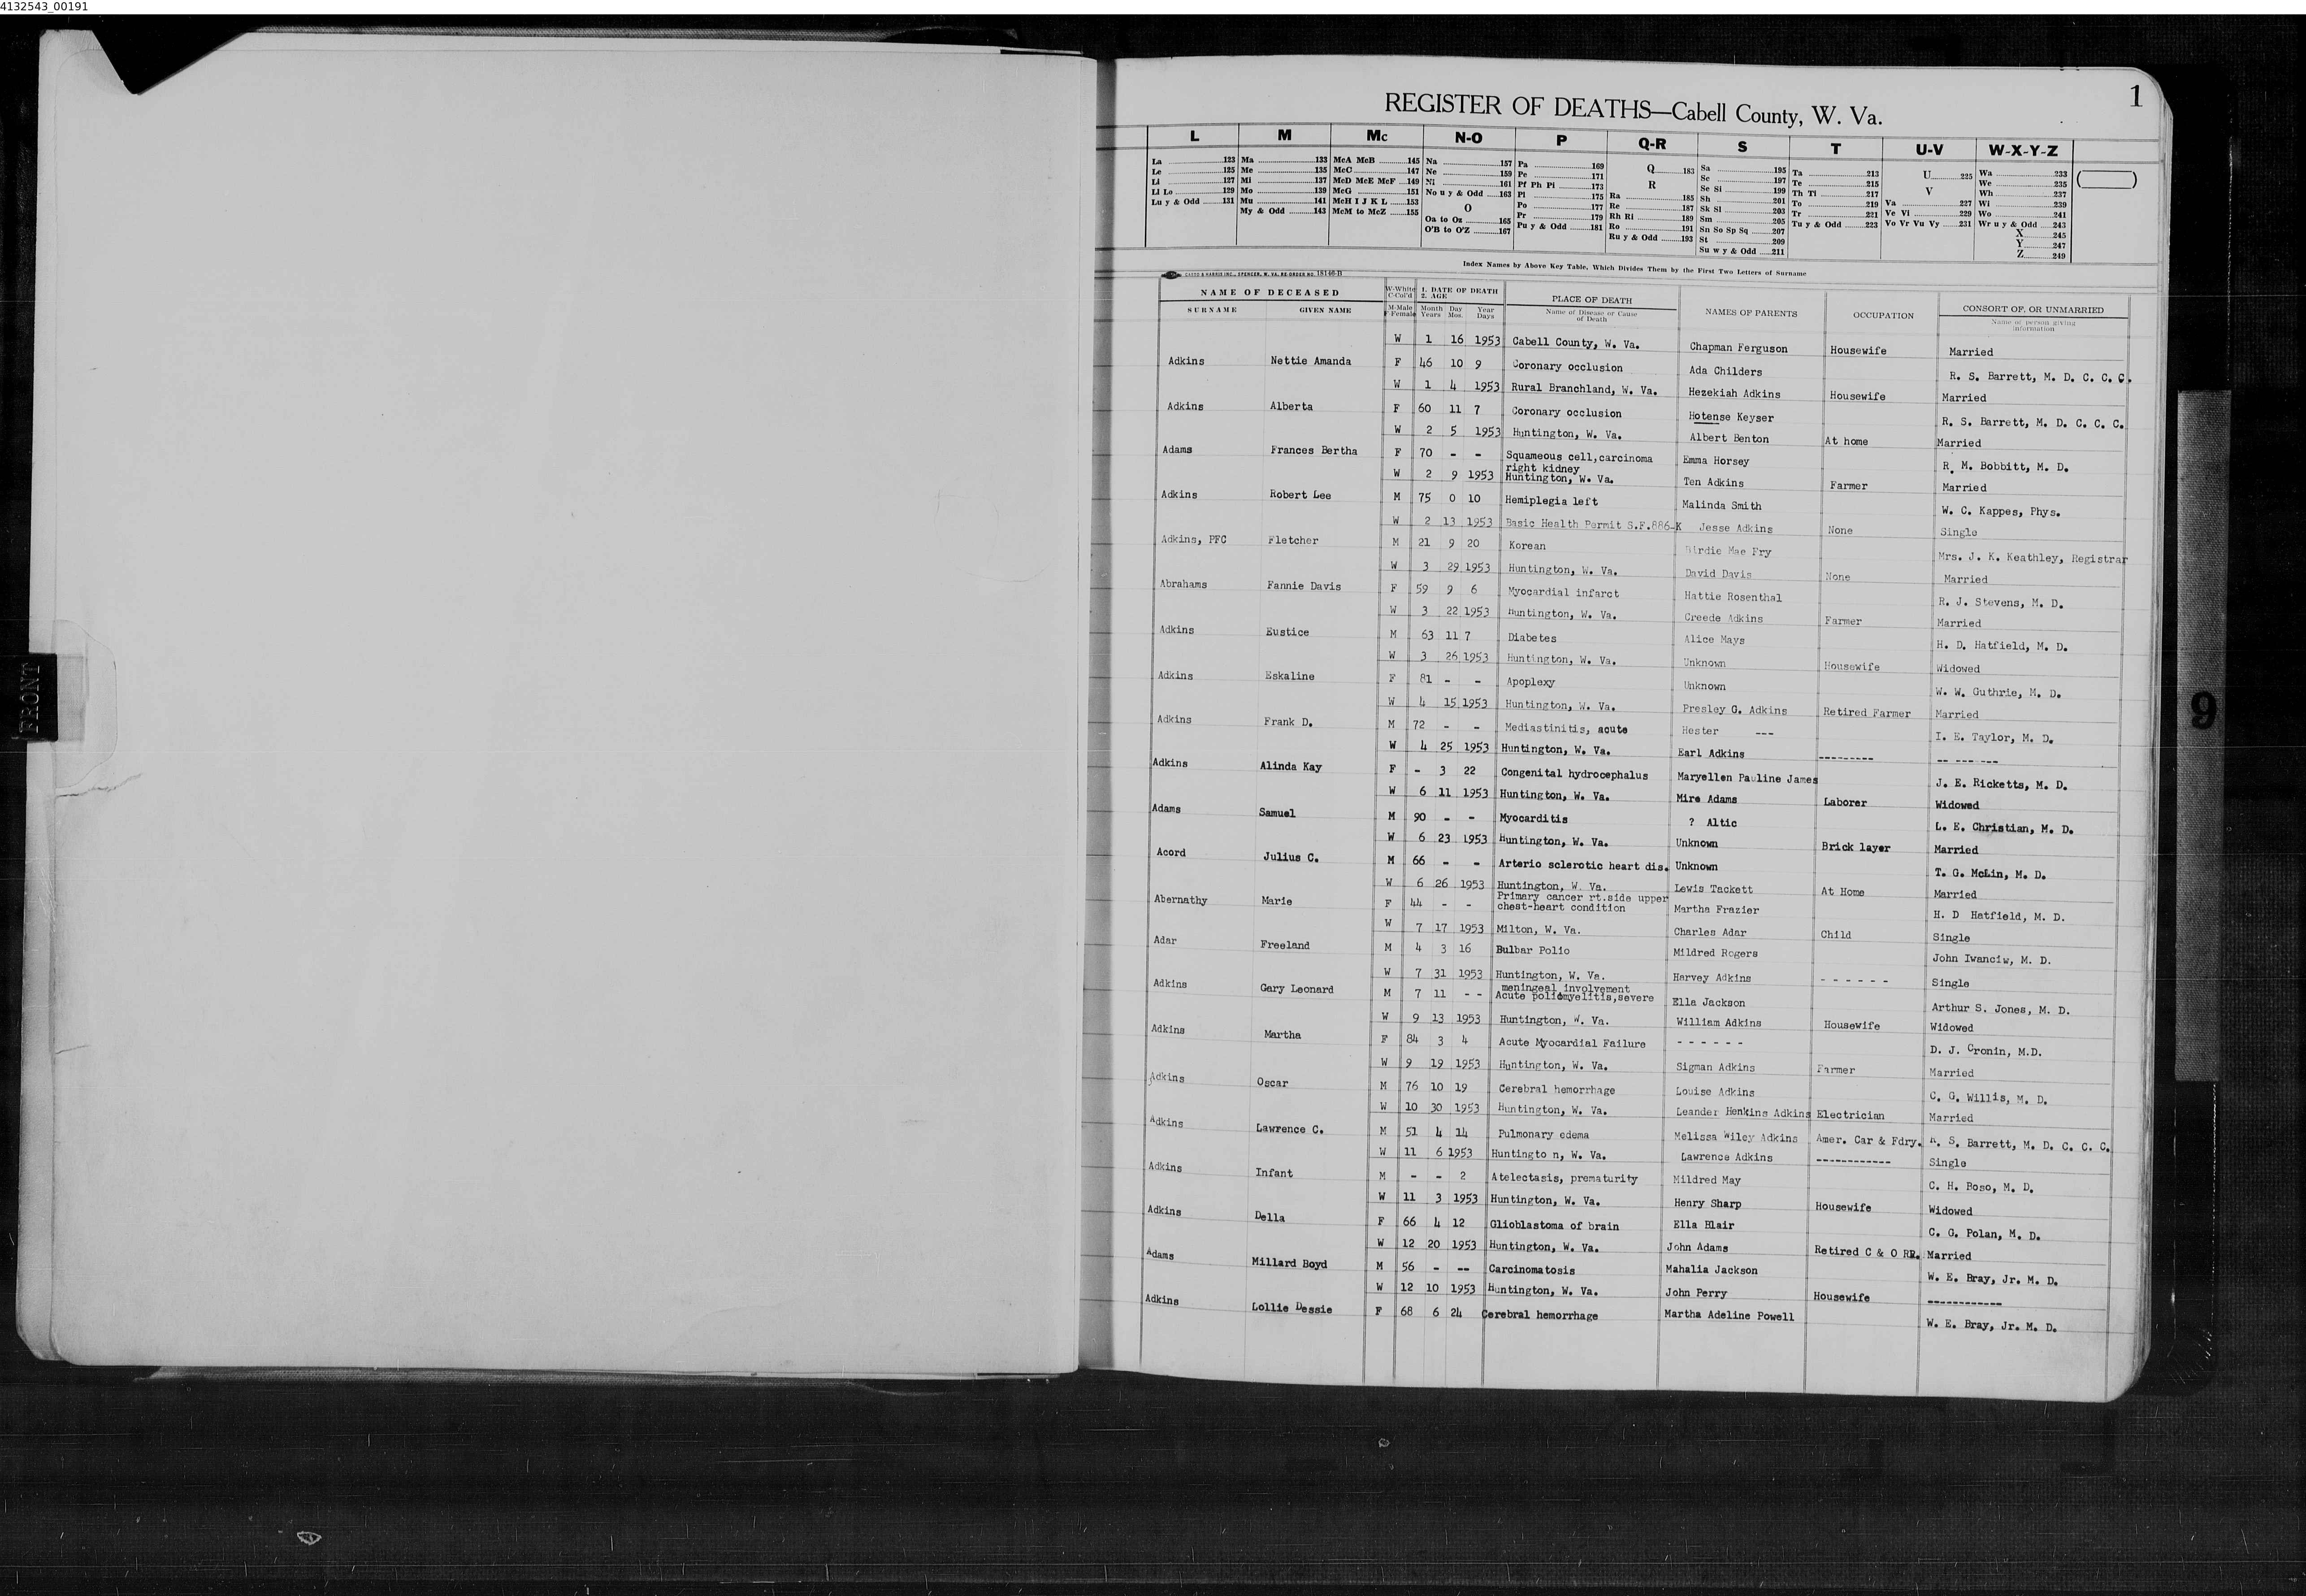 4132543_00191
1
REGISTER OF DEATHS—Cabell County, W. Va.
L M Mc N-O P Q-R S T U-V W-X-Y-Z
La 123 Ma 133 McA McB 145 Na 157 Pa 169 Q 183 Sa 195 Ta 213 U 225 Wa 233
Le 125 Me 135 McC 147 Ne 159 Pe 171 R Se 197 Te 215 V We 235
Li 127 Mi 137 McD McE McF 149 Ni 161 Pf Ph Pi 173 Ra 185 Se Si 199 Th Ti 217 Va 227 Wh 237
Ll Lo 129 Mo 139 McG 151 No u y & Odd 163 Pl 175 Re 187 Sh 201 To 219 Ve Vi 229 Wi 239
Lu y & Odd 131 Mu 141 McH I J K L 153 O Po 177 Rh Ri 189 Sk Sl 203 Tr 221 Vo Vr Vu Vy 231 Wo 241
My & Odd 143 McM to McZ 155 Oa to Oz 165 Pr 179 Ro 191 Sm 205 Tu y & Odd 223 Wr u y & Odd 243
O'B to O'Z 167 Pu y & Odd 181 Ru y & Odd 193 Sn So Sp Sq 207 X 245
St 209 Y 247
Su w y & Odd 211 Z 249
Index Names by Above Key Table, Which Divides Them by the First Two Letters of Surname
CASTO & HARRIS INC., SPENCER, W. VA. RE-ORDER NO. 18146-B
NAME OF DECEASED W-White C-Col'd 1. DATE OF DEATH 2. AGE PLACE OF DEATH NAMES OF PARENTS OCCUPATION CONSORT OF, OR UNMARRIED
SURNAME GIVEN NAME M-Male F-Female Month Years Day Mos. Year Days Name of Disease or Cause of Death Name of person giving information
W 1 16 1953 Cabell County, W. Va. Chapman Ferguson Housewife Married
Adkins Nettie Amanda F 46 10 9 Coronary occlusion Ada Childers R. S. Barrett, M. D. C. C. C.
W 1 4 1953 Rural Branchland, W. Va. Hezekiah Adkins Housewife Married
Adkins Alberta F 60 11 7 Coronary occlusion Hotense Keyser R. S. Barrett, M. D. C. C. C.
W 2 5 1953 Huntington, W. Va. Albert Benton At home Married
Adams Frances Bertha F 70 - - Squameous cell,carcinoma Emma Horsey R. M. Bobbitt, M. D.
right kidney
W 2 9 1953 Huntington, W. Va. Ten Adkins Farmer Married
Adkins Robert Lee M 75 0 10 Hemiplegia left Malinda Smith W. C. Kappes, Phys.
W 2 13 1953 Basic Health Permit S.F.886-K Jesse Adkins None Single
Adkins, PFC Fletcher M 21 9 20 Korean Birdie Mae Fry Mrs. J. K. Keathley, Registrar
W 3 29 1953 Huntington, W. Va. David Davis None Married
Abrahams Fannie Davis F 59 9 6 Myocardial infarct Hattie Rosenthal R. J. Stevens, M. D.
W 3 22 1953 Huntington, W. Va. Creede Adkins Farmer Married
Adkins Eustice M 63 11 7 Diabetes Alice Mays H. D. Hatfield, M. D.
W 3 26 1953 Huntington, W. Va. Unknown Housewife Widowed
Adkins Eskaline F 81 - - Apoplexy Unknown W. W. Guthrie, M. D.
W 4 15 1953 Huntington, W. Va. Presley G. Adkins Retired Farmer Married
Adkins Frank D. M 72 - - Mediastinitis, acute Hester --- I. E. Taylor, M. D.
W 4 25 1953 Huntington, W. Va. Earl Adkins --------- -- --- ---
Adkins Alinda Kay F - 3 22 Congenital hydrocephalus Maryellen Pauline James J. E. Ricketts, M. D.
W 6 11 1953 Huntington, W. Va. Mire Adams Laborer Widowed
Adams Samuel M 90 - - Myocarditis ? Altic L. E. Christian, M. D.
W 6 23 1953 Huntington, W. Va. Unknown Brick layer Married
Acord Julius C. M 66 - - Arterio sclerotic heart dis. Unknown T. G. McLin, M. D.
W 6 26 1953 Huntington, W. Va. Lewis Tackett At Home Married
Abernathy Marie F 44 - - Primary cancer rt.side upper
chest-heart condition Martha Frazier H. D Hatfield, M. D.
W 7 17 1953 Milton, W. Va. Charles Adar Child Single
Adar Freeland M 4 3 16 Bulbar Polio Mildred Rogers John Iwanciw, M. D.
W 7 31 1953 Huntington, W. Va. Harvey Adkins - - - - - - Single
meningeal involvement
Adkins Gary Leonard M 7 11 - - Acute poliomyelitis,severe Ella Jackson Arthur S. Jones, M. D.
W 9 13 1953 Huntington, W. Va. William Adkins Housewife Widowed
Adkins Martha F 84 3 4 Acute Myocardial Failure - - - - - - D. J. Cronin, M.D.
W 9 19 1953 Huntington, W. Va. Sigman Adkins Farmer Married
Adkins Oscar M 76 10 19 Cerebral hemorrhage Louise Adkins C. G. Willis, M. D.
W 10 30 1953 Huntington, W. Va. Leander Henkins Adkins Electrician Married
Adkins Lawrence C. M 51 4 14 Pulmonary edema Melissa Wiley Adkins Amer. Car & Fdry. R. S. Barrett, M. D. C. C. C.
W 11 6 1953 Huntingto n, W. Va. Lawrence Adkins ------------ Single
Adkins Infant M - - 2 Atelectasis, prematurity Mildred May C. H. Boso, M. D.
W 11 3 1953 Huntington, W. Va. Henry Sharp Housewife Widowed
Adkins Della F 66 4 12 Glioblastoma of brain Ella Blair C. G. Polan, M. D.
W 12 20 1953 Huntington, W. Va. John Adams Retired C & O RR. Married
Adams Millard Boyd M 56 - -- Carcinomatosis Mahalia Jackson W. E. Bray, Jr. M. D.
W 12 10 1953 Huntington, W. Va. John Perry Housewife ------------
Adkins Lollie Dessie F 68 6 24 Cerebral hemorrhage Martha Adeline Powell W. E. Bray, Jr. M. D.
FRONT
9